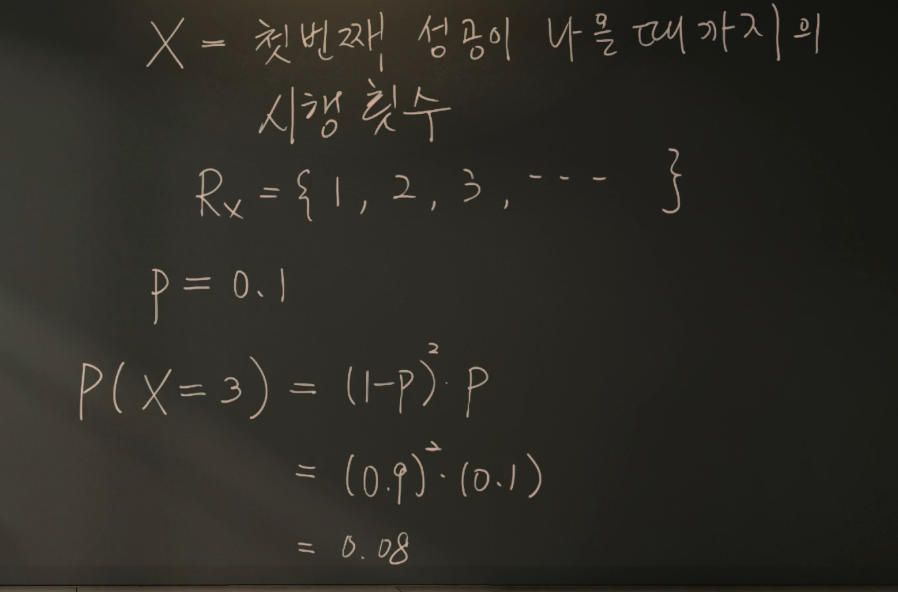 X = 첫번째 성공이 나올 때까지의
시행 횟수
Rx = { 1, 2, 3, --- }
p = 0.1
P(X=3) = (1-p)²· p
= (0.9)²· (0.1)
= 0.08